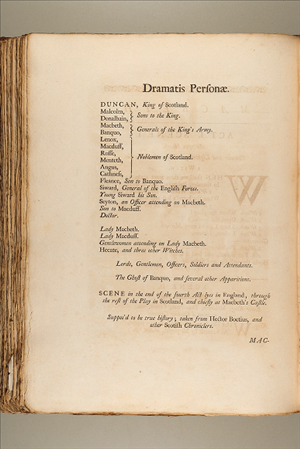 Dramatis Personæ.
DUNCAN, King of Scotland.
Malcolm,
Donalbain, Sons to the King.
Macbeth,
Banquo, Generals of the King's Army.
Lenox,
Macduff,
Rosse,
Menteth, Noblemen of Scotland.
Angus,
Cathness,
Fleance, Son to Banquo.
Siward, General of the English Forces.
Young Siward his Son.
Seyton, an Officer attending on Macbeth.
Son to Macduff.
Doctor.
Lady Macbeth.
Lady Macduff.
Gentlewomen attending on Lady Macbeth.
Hecate, and three other Witches.
Lords, Gentlemen, Officers, Soldiers and Attendants.
The Ghost of Banquo, and several other Apparitions.
SCENE in the end of the fourth Act lyes in England, through
the rest of the Play in Scotland, and chiefly at Macbeth's Castle.
Suppos'd to be true history; taken from Hector Boetius, and
other Scotish Chroniclers.
MAC-